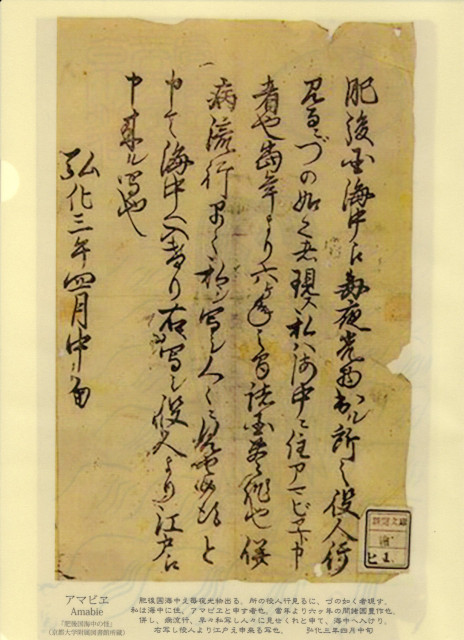 肥後国海中江毎夜光物出ル所之役人行
見るニづの如之者現ス私ハ海中ニ住アマビヱト申
者也當年より六ヶ年之間諸国豊作也併
病流行早々私シ写シ人々ニ見セ候得と
申て海中へ入けり右写シ役人より江戸江
申来ル写也
弘化三年四月中旬
アマビヱ
Amabie
『肥後国海中の怪』
(京都大学附属図書館所蔵)
肥後国海中え毎夜光物出る、所の役人行見るに、づの如く者現す、
私は海中に住、アマビヱと申す者也、當年より六ヶ年の間諸国豊作也、
併し、病流行、早々私写し人々に見せくれと申て、海中へ入けり、
右写し役人より江戸え申来る写也、
弘化三年四月中旬